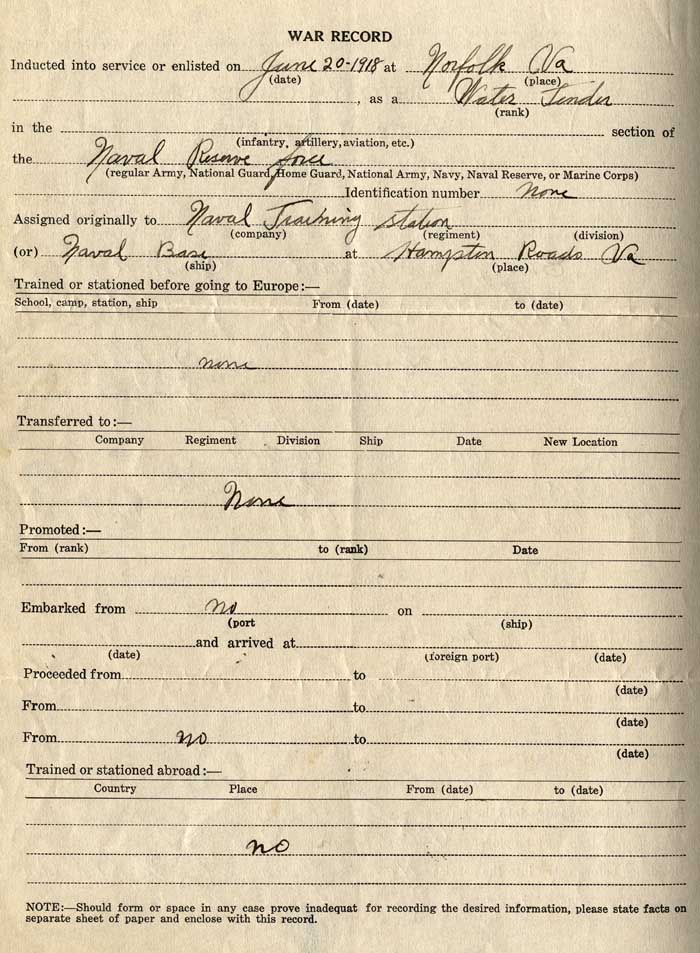 WAR RECORD
Inducted into service or enlisted on June 20-1918 at Norfolk Va
(date) (place)
, as a Water Tender
(rank)
in the section of
(infantry, artillery, aviation, etc.)
the Naval Reserve force
(regular Army, National Guard, Home Guard, National Army, Navy, Naval Reserve, or Marine Corps)
Identification number none
Assigned originally to Naval Training Station
(company) (regiment) (division)
(or) Naval Base at Hampton Roads Va
(ship) (place)
Trained or stationed before going to Europe:—
School, camp, station, ship From (date) to (date)
none
Transferred to:—
Company Regiment Division Ship Date New Location
None
Promoted:—
From (rank) to (rank) Date
Embarked from no on
(port (ship)
and arrived at
(date) (foreign port) (date)
Proceeded from to
(date)
From to
(date)
From no to
(date)
Trained or stationed abroad:—
Country Place From (date) to (date)
no
NOTE:—Should form or space in any case prove inadequat for recording the desired information, please state facts on
separate sheet of paper and enclose with this record.